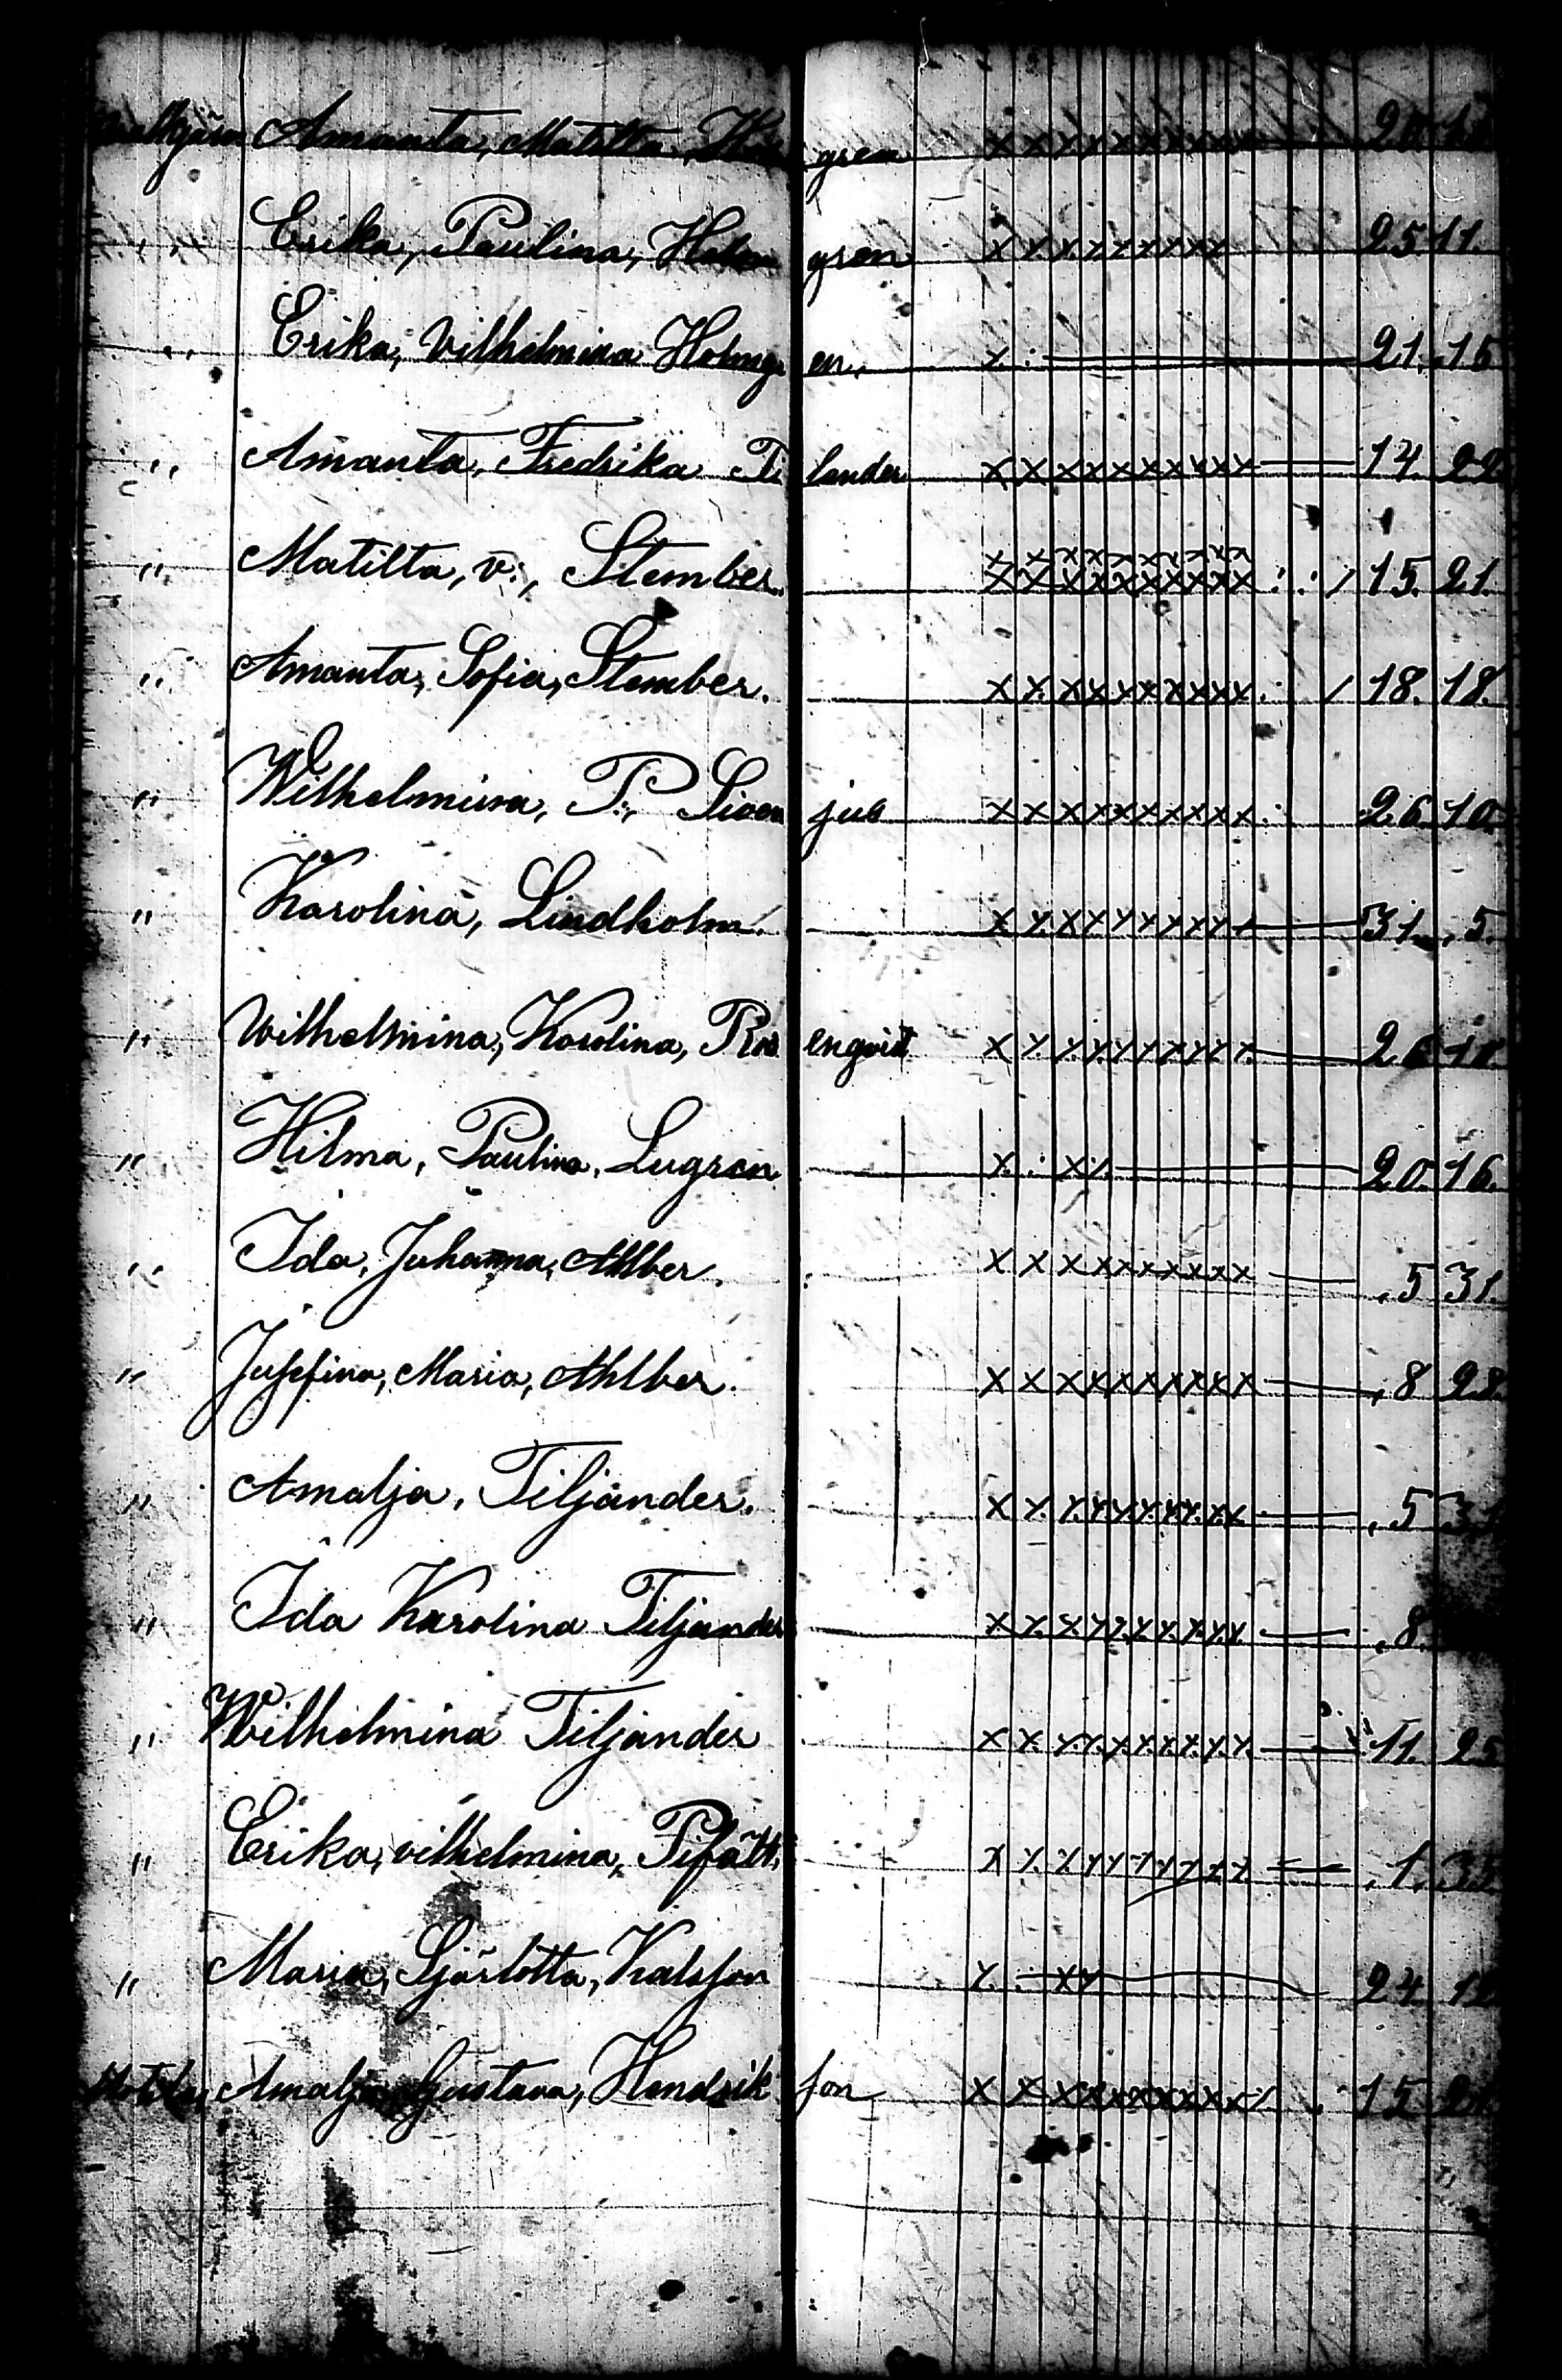 Amanta, Matilta, Holmgren xxxxxxxxxx 20
" Erika, Paulina, Holmgren xxxxxxxxxx 25 11.
" Erika, Vilhelmina Holmgren. x : 21. 15
" Amanta, Fredrika Tilander xxxxxxxxxx 14. 22
" Matilta, v:, Stember. xxxxxxxxxx xxxxxxxxxx : : / 15. 21.
" Amanta, Sofia, Stember. xxxxxxxxxx : / 18. 18.
" Wilhelmina, P:, xxxxxxxxxx : 26. 10.
" Karolina, Lindholm. xxxxxxxxxx 31. ,5.
" Wilhelmina, Karolina, Rosenqvist xxxxxxxxxx 26
" Hilma, Paulina, Lugren x : xx 20. 16.
" Ida, Juhanna, Ahlber. xxxxxxxxxx ,5 31.
" Jusefina, Maria, Ahlber. xxxxxxxxxx ,8 28.
" Amalja, Tiljander. xxxxxxxxxx ,5 31
" Ida Karolina Tiljander xxxxxxxxxx ,8.
" Wilhelmina Tiljander xxxxxxxxxx 11. 25
" Erika, vilhelmina, xxxxxxxxxx ,1. 35
" Maria, Sjärlotta, Kalsson x : xx 24 12
Amalja Gustava, Hendrikson xxxxxxxxxx 15 21